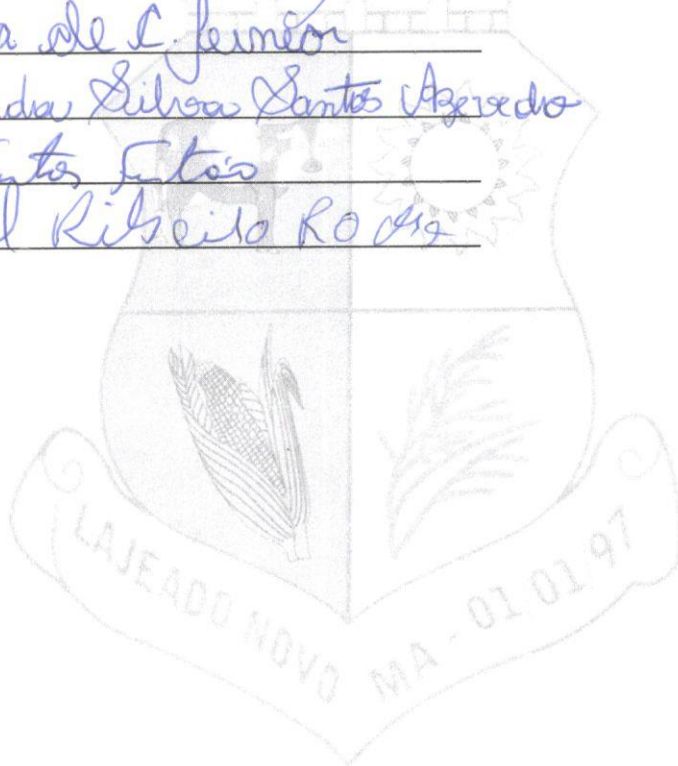 a de C. Junior
dra Silva Santos Azevedo
ntos
l Ribeiro Rocha
LAJEADO NOVO MA - 01 01 97